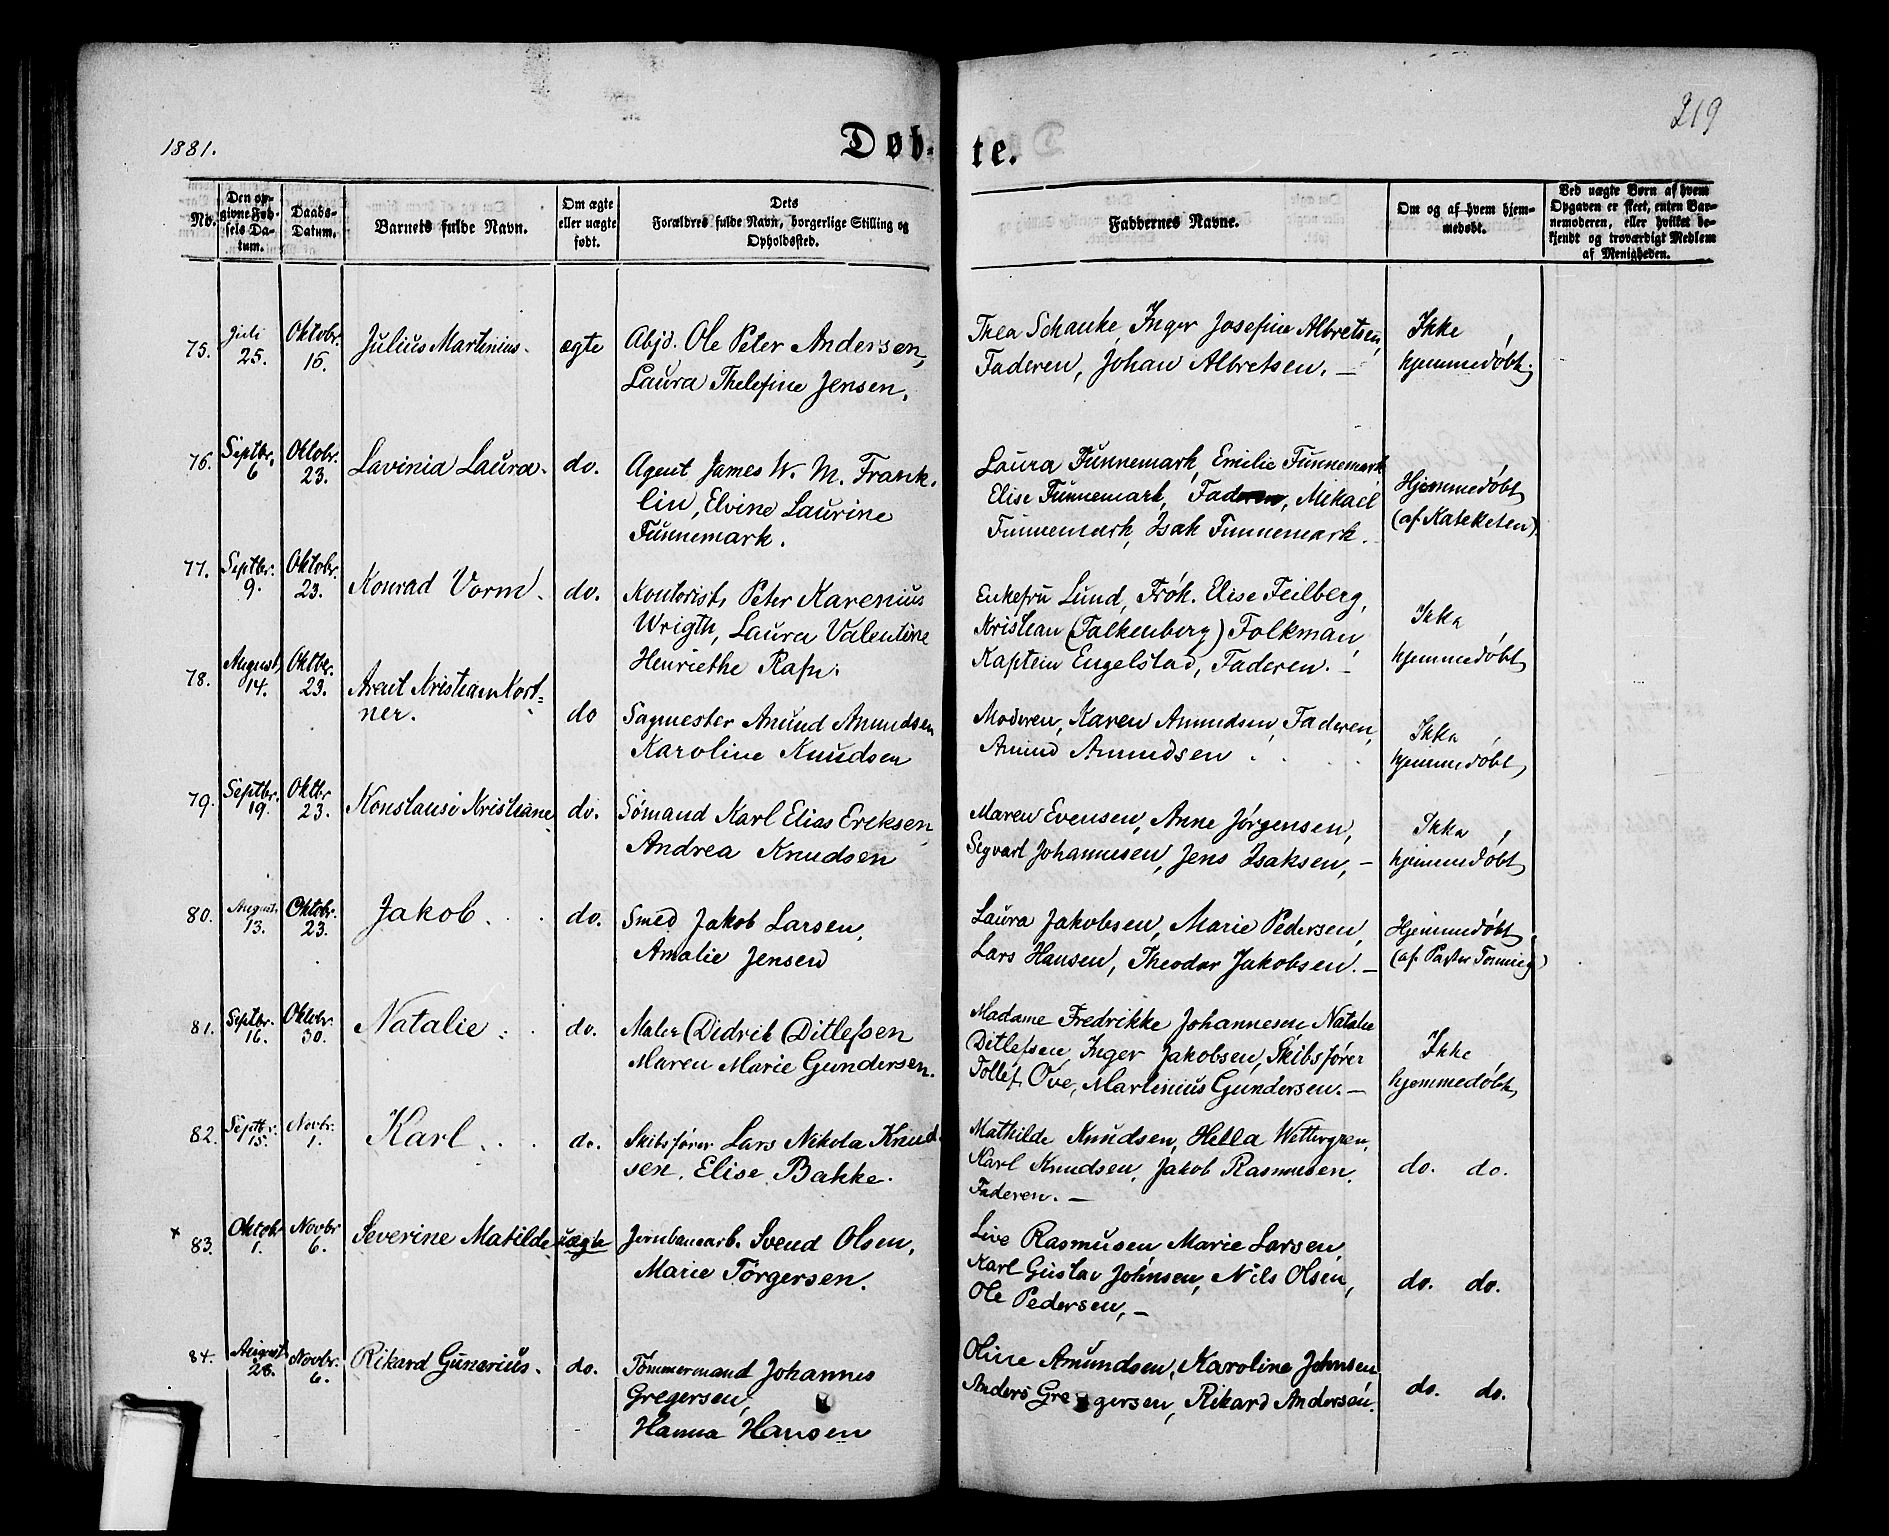 1881.
Døb-
te.
219
No.
Den opgivne Fødsels Datum.
Daabs-Datum.
Barnets fulde Navn.
Om ægte eller uægte født.
Dets Forældres fulde Navn, borgerlige Stilling og Opholdssted.
Faddernes Navne.
Om og af hvem hjemmedøbt.
Ved uægte Børn af hvem Opgaven er skeet, enten Barnemoderen, eller hvilket bekjendt og troværdigt Medlem af Menigheden.
75. Juli 25. Oktobr. 16. Julius Martinius. ægte Abjd. Ole Peter Andersen,
Laura Thelefine Jensen.
Thea Schanke, Inger Josefine Albretsen,
Faderen, Johan Albretsen. —
Ikke
hjemmedøbt.
76. Septbr. 6 Oktobr. 23. Lavinia Laura. do. Agent James W. M. Frank-
lin, Elvine Laurine
Funnemark.
Laura Funnemark, Emilie Funnemark
Elise Funnemark, Faderen, Mikael
Funnemark, Isak Funnemark.
Hjemmedøbt
(af Kateketen)
77. Septbr. 9. Oktobr. 23. Konrad Vorm. do. Kontorist, Peter Karenius
Wrigth, Laura Valentine
Henriethe Rafn.
Enkefru Lund, Frøk. Elise Feilberg,
Kristian (Falkenberg) Folkman,
Kaptein Engelstad, Faderen. —
Ikke
hjemmedøbt
78. August 14. Oktbr. 23. Arent Kristian Kort-
ner. do Sagmester Anund Anundsen
Karoline Knudsen
Moderen, Karen Anundsen, Faderen,
Anund Anundsen
Ikke
hjemmedøbt
79. Septbr. 19. Oktbr. 23. Konstansi Kristiane do. Sømand Karl Elias Eriksen,
Andrea Knudsen
Maren Evensen, Anne Jørgensen,
Sigvart Johannesen, Jens Isaksen, —
Ikke
hjemmedøbt
80. August 13. Oktobr. 23. Jakob. do. Smed Jakob Larsen,
Amalie Jensen
Laura Jakobsen, Marie Pedersen,
Lars Hansen, Theodor Jakobsen. —
Hjemmedøbt
(af Pastor Tønning)
81. Septbr. 16. Oktobr. 30. Natalie. do. Maler Didrik Ditlefsen
Maren Marie Gundersen.
Madame Fredrikke Johannesen Natalie
Ditlefsen, Inger Jakobsen, Skibsfører
Tollef Ove, Martinius Gundersen. —
Ikke
hjemmedøbt
82. Septbr. 15. Novbr. 1. Karl do. Skibsfører Lars Nikola Knud-
sen. Elise Bakke.
Mathilde Knudsen, Hella Wettergren,
Karl Knudsen, Jakob Rasmusen,
Faderen. —
do. do.
x 83. Oktobr 1. Novbr 6. Severine Matilde uægte Jernbanearb. Svend Olsen,
Marie Torgersen.
Live Rasmusen Marie Larsen,
Karl Gustav Johnsen, Nils Olsen,
Ole Pedersen, —
do. do.
84. August 28. Novbr. 6. Rikard Gunerius. do. Tømmermand Johannes
Gregersen,
Hanna Hansen
Oline Amundsen, Karoline Johnsen
Anders Gregersen, Rikard Andersen.
do. do.